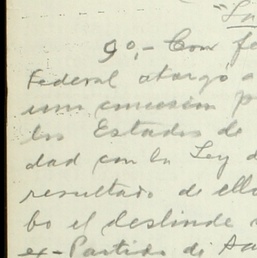 "La
9o,- Con fe
Federal otorgó a
una concesión p
los Estados de
dad con la Ley d
resultado de ello
bo el deslinde
ex-Partido de